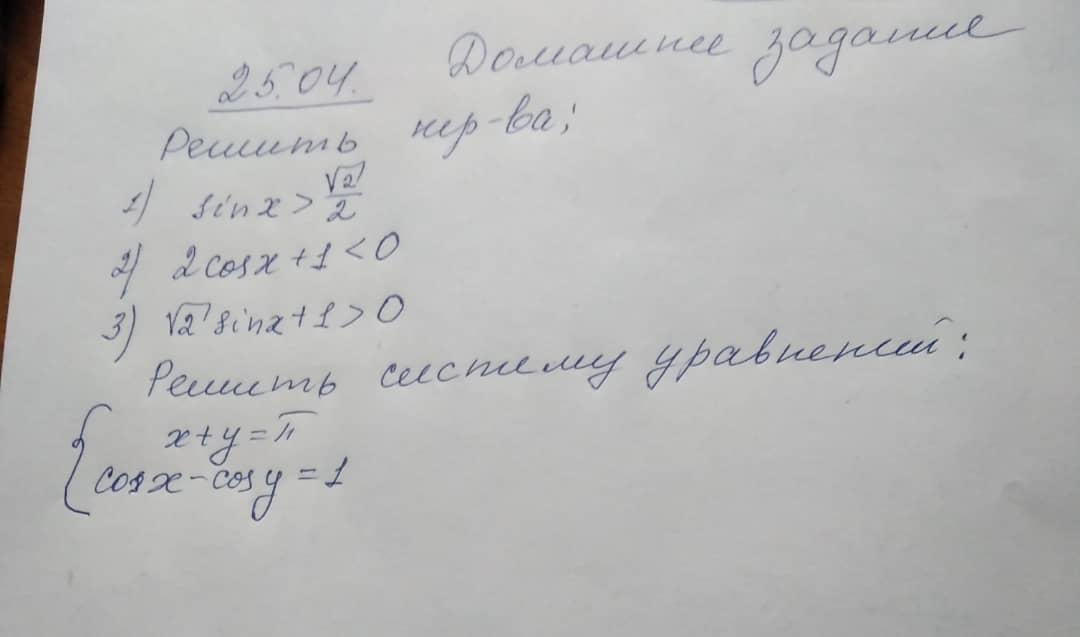 25.04. Домашнее задание
Решить нер-ва:
1) sinx > √2/2
2) 2cosx + 1 < 0
3) √2 sinx + 1 > 0
Решить систему уравнений:
{ x + y = π
cosx - cosy = 1